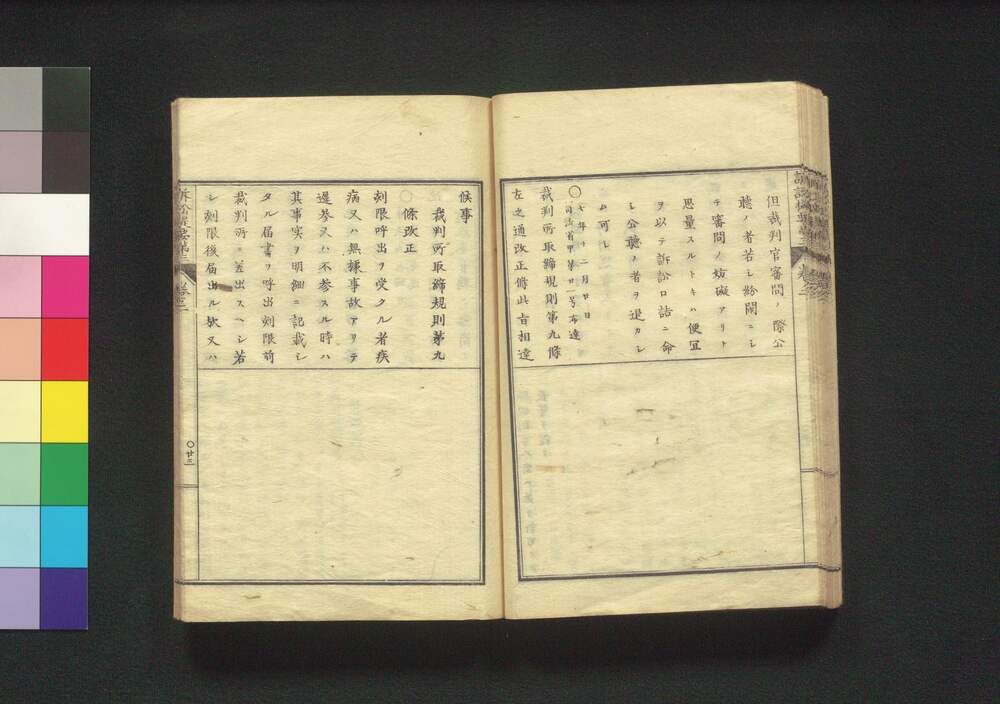 但裁判官審問ノ際公
聴ノ者若シ紛閙ニシ
テ審問ノ妨礙アリト
思量スルトキハ便宜
ヲ以テ訴訟口詰ニ命
シ公聴ノ者ヲ退カシ
ム可シ
○七年十二月 日
司法省甲第 号布達
裁判所取締規則第九條
左之通改正候此旨相達
候事
裁判所取締規則第九
條改正
刻限呼出ヲ受タル者疾
病又ハ無據事故アリテ
遅参又ハ不参スル時ハ
其事実ヲ明細ニ記載シ
タル届書ヲ呼出刻限前
裁判所ニ差出スヘシ若
シ刻限後届出ル歟又ハ
訴訟 卷之二
○廿三